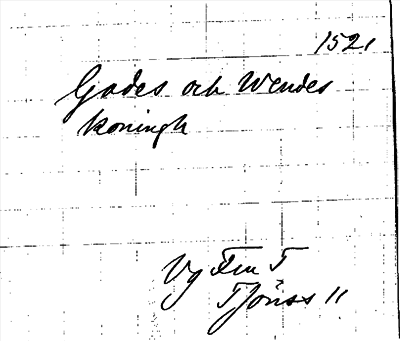 1521
Godes och Wendes
koningh
Vg Fm T
Tjöuss 11